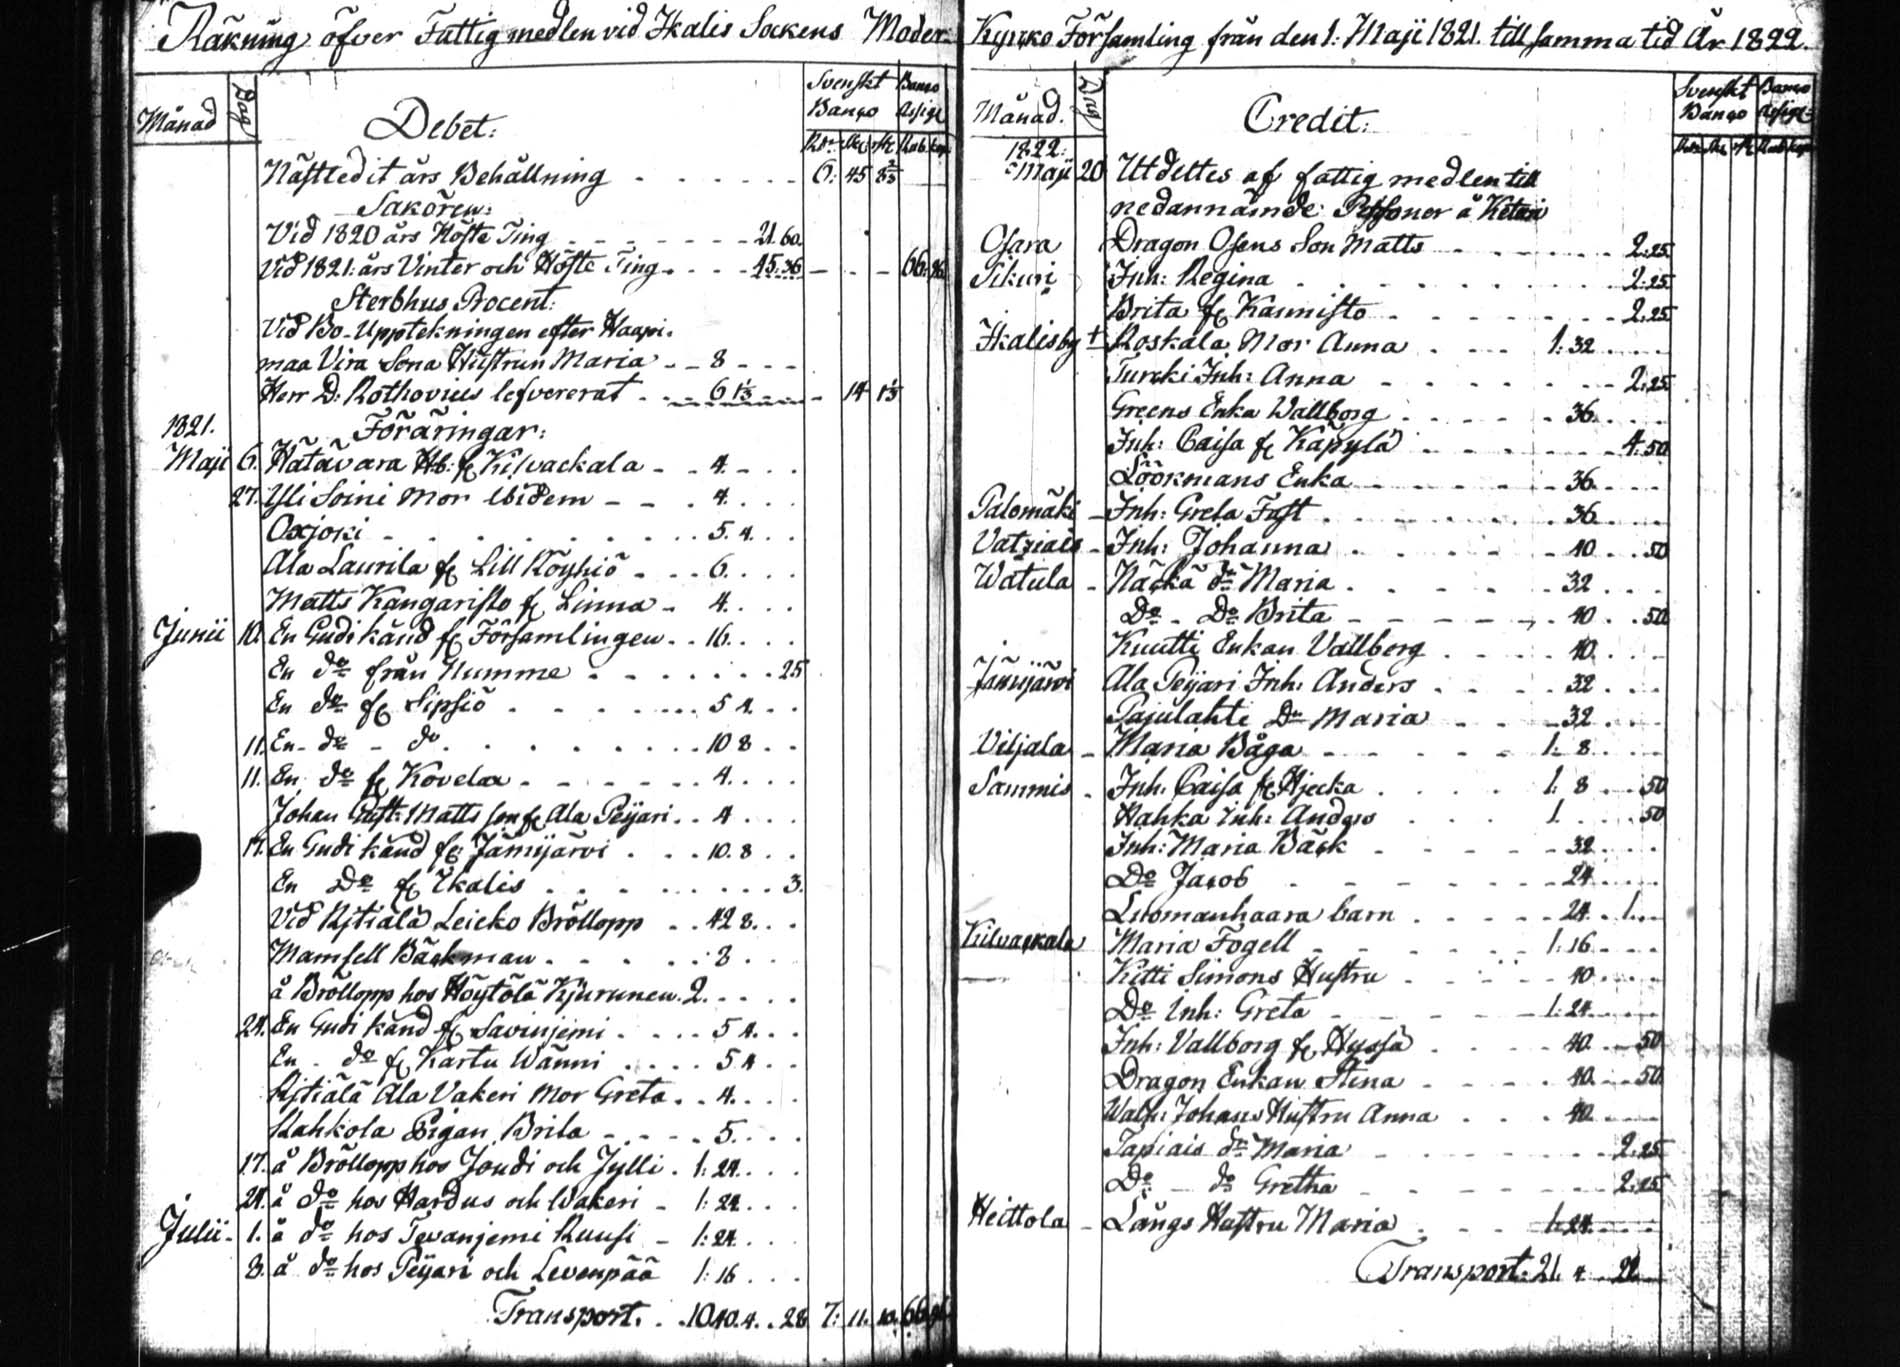 Räkning öfver Fattigmedlen vid Ikalis Sockens Moder
Månad Dag Debet: Svenskt Banco Banco Assign
Rdr sk rst Rub. kop
Nästledit års Behållning 6: 45 8 2/3
Sakören:
Vid 1820 års Höste Ting 21.60.
Vid 1821 års Vinter och Höste Ting 45.36 66:96
Sterbhus Procent:
Vid Bo-Upptekningen efter Haapi-
maa Vira Sona Hustrun Maria 8
Herr D: Rothovius lefvererat 6 1/3 14 1/3
1821. Föräringar:
Maji 6. Hätävara Hb: fr Kilvackala 4.
27. Yli Soini Mor ibidem 4.
Oxjoki 5.4.
Ala Laurila fr Lill Röyhiö 6.
Matts Kangaristo fr Linna 4.
Junii 10. En Gudi känd fr Församlingen 16.
En do från Numme 25
En do fr Sipsiö 5 4.
11. En do do 10 8
11. En do fr Kovelax 4.
Johan Gust: Matts son fr Ala Peijari 4
17. En Gudi känd fr Jämijärvi 10.8
En Do fr Ikalis 3.
Vid Kjtiälä Leicko Bröllopp 42 8.
Mamsell Bäckman 8
å Bröllopp hos Höytölä Kjurunen 2.
24. En Gudi känd fr Savinjemi 5 4.
En do fr Kartu Wänni 5 4
Kjtiälä Ala Vakeri Mor Greta 4.
Kahkola Pigan Brita 5.
17. å Bröllopp hos Joudi och Jylli 1:24.
24. å do hos Hardus och Wakeri 1:24
Julii 1. å do hos Tevanjemi Ruusi 1:24
8. å do hos Peijari och Levenpää 1:16
Transport. 10 40.4. 28 7: 11. 10. 66.96
Kyrko Församling från den 1: Maji 1821. till samma tid År 1822.
Månad. Dag Credit: Svenskt Banco Banco Assign
Rdr sk rst Rub kop
1822:
Maji 20 Utdeltes af fattig medlen till
nedannämde Personer å
Osara Dragon Osens Son Matts 2:25
Sikuri Inh: Regina 2:25
Brita fr Kannisto 2:25
Ikalisby † Koskala Mor Anna 1:32
Turcki Inh: Anna 2:25
Greens Enka Wallborg 36.
Inh: Caisa fr Käpylä 4:50
Löökmans Enka 36
Palomäki Inh: Greta Fast 36
Vatziais Inh: Johanna 40 50
Watula Näckä do Maria 32
Do Do Brita 40 50
Kuutti Enkan Vallborg 40
Jämijärvi Ala Peijari Inh: Anders 32
Pajulahti Do Maria 32
Viljala Maria Båga 1: 8
Sammis Inh: Caisa fr Hjecka 1: 8 50
Hahka Inh: Anders 1 50
Inh: Maria Bäck 32
Do Jacob 24
Luomanhaara barn 24 1.
Kilvackala Maria Fogell 1:16
Kitti Simons Hustru 40
Do Inh: Greta 1:24
Inh: Vallborg fr Hyssä 40 50
Dragon Enkan Stina 40 50
Walfr: Johans Hustru Anna 40
Tapiais do Maria 2:25
Do do Gretha 2:25
Heittola Långs Hustru Maria 1:24
Transport: 21 4 22